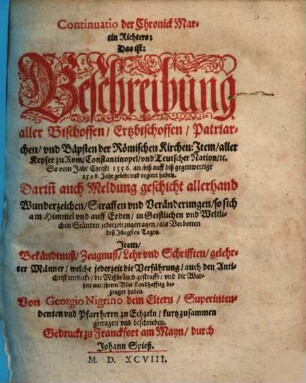 Continuatio der Chronick Mar-
tin Richters;
Das ist:
Beschreibung
aller Bischoffen / Ertzbischoffen / Patriar-
chen / und Bäpsten der Römischen Kirchen: Item / aller
Keyser zu Rom / Constantinopel / und Teutscher Nation / ec.
So vom Jahr Christi 1556. an biß auff diß gegenwertige
1598. Jahr gelebt und regiert haben.
Dariñ auch Meldung geschicht allerhand
Wunderzeichen / Straffen und Veränderungen / so sich
am Himmel und auff Erden / in Geistlichen und Weltli-
chen Ständen jederzeit zugetragen / als Vorbotten
deß Jüngsten Tages.
Item /
Bekandtnuß / Zeugnuß / Lehr und Schrifften / gelehr-
ter Männer / welche jederzeit die Verführung / auch den Anti-
christ entdeckt / die Mißbräuch gestrafft / und die War-
heit mit ihrem Blut standthafftig be-
zeuget haben.
Von Georgio Nigrino dem Eltern / Superinten-
denten und Pfarrherrn zu Echzeln / kurtz zusammen
getragen und beschrieben.
Gedruckt zu Franckfort am Mayn / durch
Johann Spieß.
M. D. XCVIII.